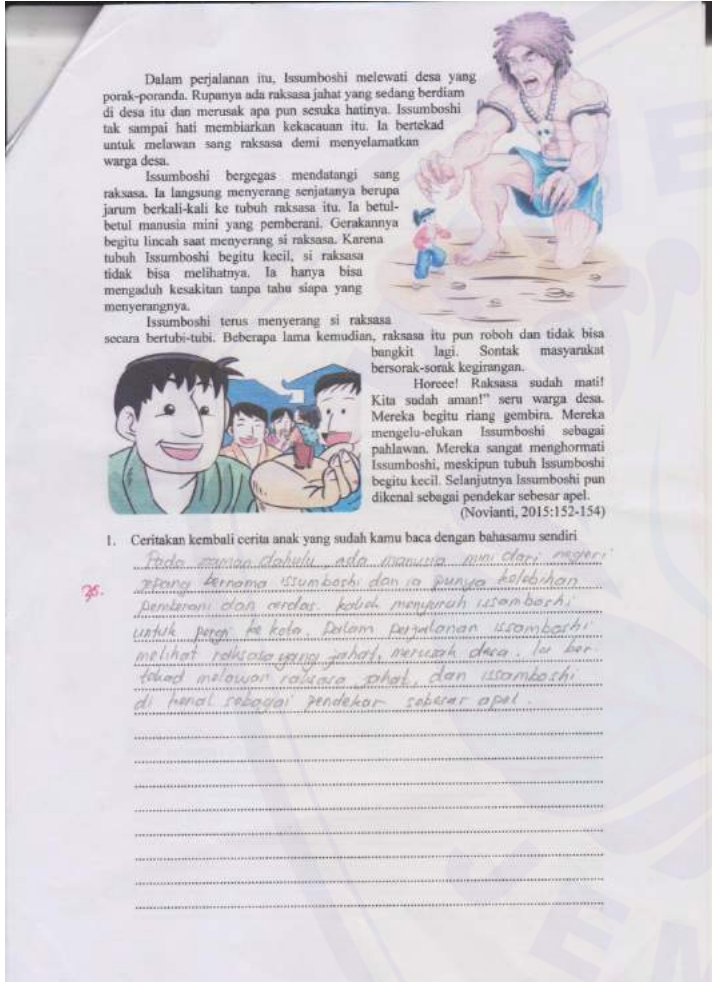 Dalam perjalanan itu, Issumboshi melewati desa yang
porak-poranda. Rupanya ada raksasa jahat yang sedang berdiam
di desa itu dan merusak apa pun sesuka hatinya. Issumboshi
tak sampai hati membiarkan kekacauan itu. Ia bertekad
untuk melawan sang raksasa demi menyelamatkan
warga desa.
Issumboshi bergegas mendatangi sang
raksasa. Ia langsung menyerang senjatanya berupa
jarum berkali-kali ke tubuh raksasa itu. Ia betul-
betul manusia mini yang pemberani. Gerakannya
begitu lincah saat menyerang si raksasa. Karena
tubuh Issumboshi begitu kecil, si raksasa
tidak bisa melihatnya. Ia hanya bisa
mengaduh kesakitan tanpa tahu siapa yang
menyerangnya.
Issumboshi terus menyerang si raksasa
secara bertubi-tubi. Beberapa lama kemudian, raksasa itu pun roboh dan tidak bisa
bangkit lagi. Sontak masyarakat
bersorak-sorak kegirangan.
Horeee! Raksasa sudah mati!
Kita sudah aman!” seru warga desa.
Mereka begitu riang gembira. Mereka
mengelu-elukan Issumboshi sebagai
pahlawan. Mereka sangat menghormati
Issumboshi, meskipun tubuh Issumboshi
begitu kecil. Selanjutnya Issumboshi pun
dikenal sebagai pendekar sebesar apel.
(Novianti, 2015:152-154)
1. Ceritakan kembali cerita anak yang sudah kamu baca dengan bahasamu sendiri
Pada zaman dahulu, ada manusia mini dari negeri
bernama issumboshi dan ia punya kelebihan
pemberani dan cerdas. menyuruh issamboshi
untuk pergi ke kota. Dalam perjalanan issamboshi
melihat raksasa yang jahat, merusak desa. Ia ber
tekad melawan raksasa jahat, dan issamboshi
di kenal sebagai pendekar sebesar apel.